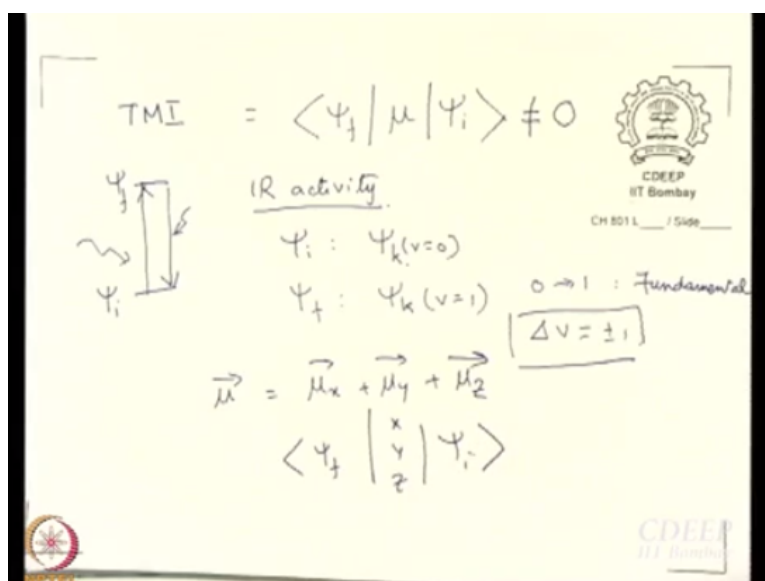 TMI = <Ψf | μ | Ψi> ≠ 0
CDEEP
IIT Bombay
CH 801 L___ / Slide___
Ψf
IR activity
Ψi
Ψi : Ψk (v=0)
Ψf : Ψk (v=1)
0→1 : Fundamental
Δv = ±1
μ⃗ = μ⃗x + μ⃗y + μ⃗z
<Ψf | x y z | Ψi>
CDEEP
IIT Bombay